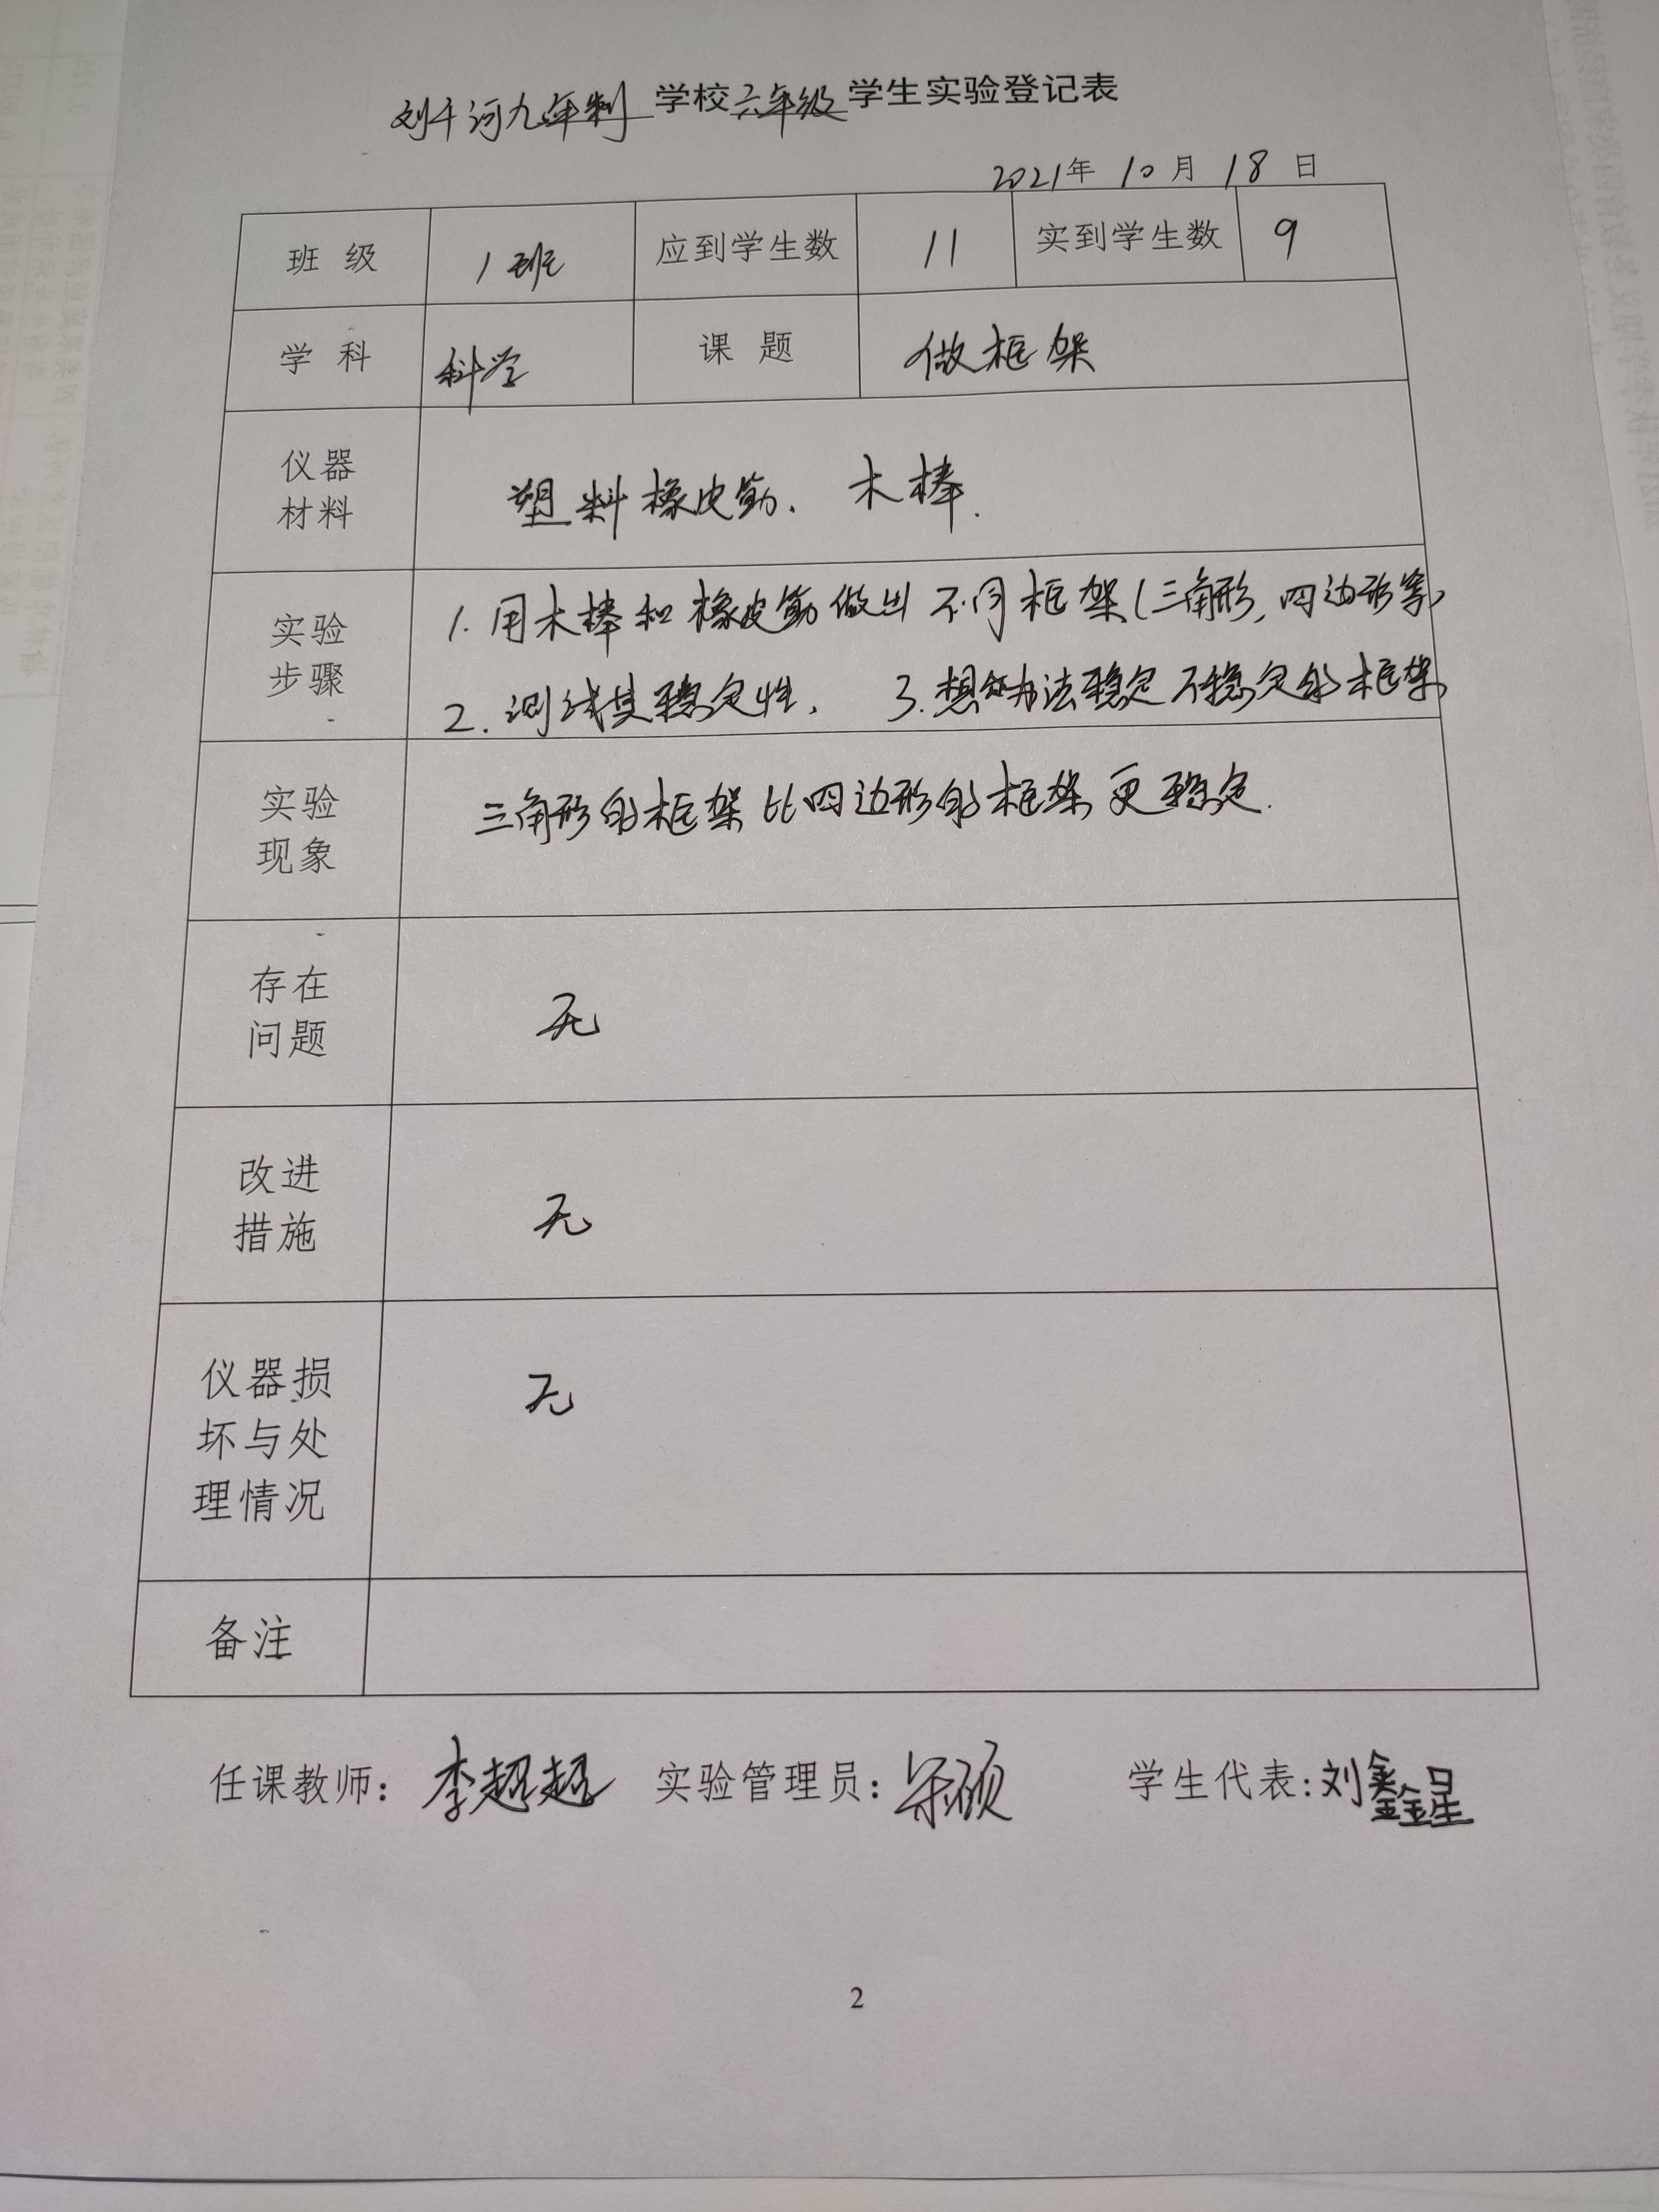 刘千河九年制学校六年级学生实验登记表
2021年 10月 18日
班 级 1班 应到学生数 11 实到学生数 9
学 科 科学 课 题 做框架
仪器
材料
塑料橡皮筋、木棒.
实验
步骤
1. 用木棒和橡皮筋做出不同框架(三角形,四边形等)
2. 测试其稳定性, 3. 想办法稳定不稳定的框架
实验
现象
三角形的框架比四边形的框架更稳定.
存在
问题
无
改进
措施
无
仪器损
坏与处
理情况
无
备注
任课教师: 李超超 实验管理员: 硕 学生代表: 刘鑫星
2